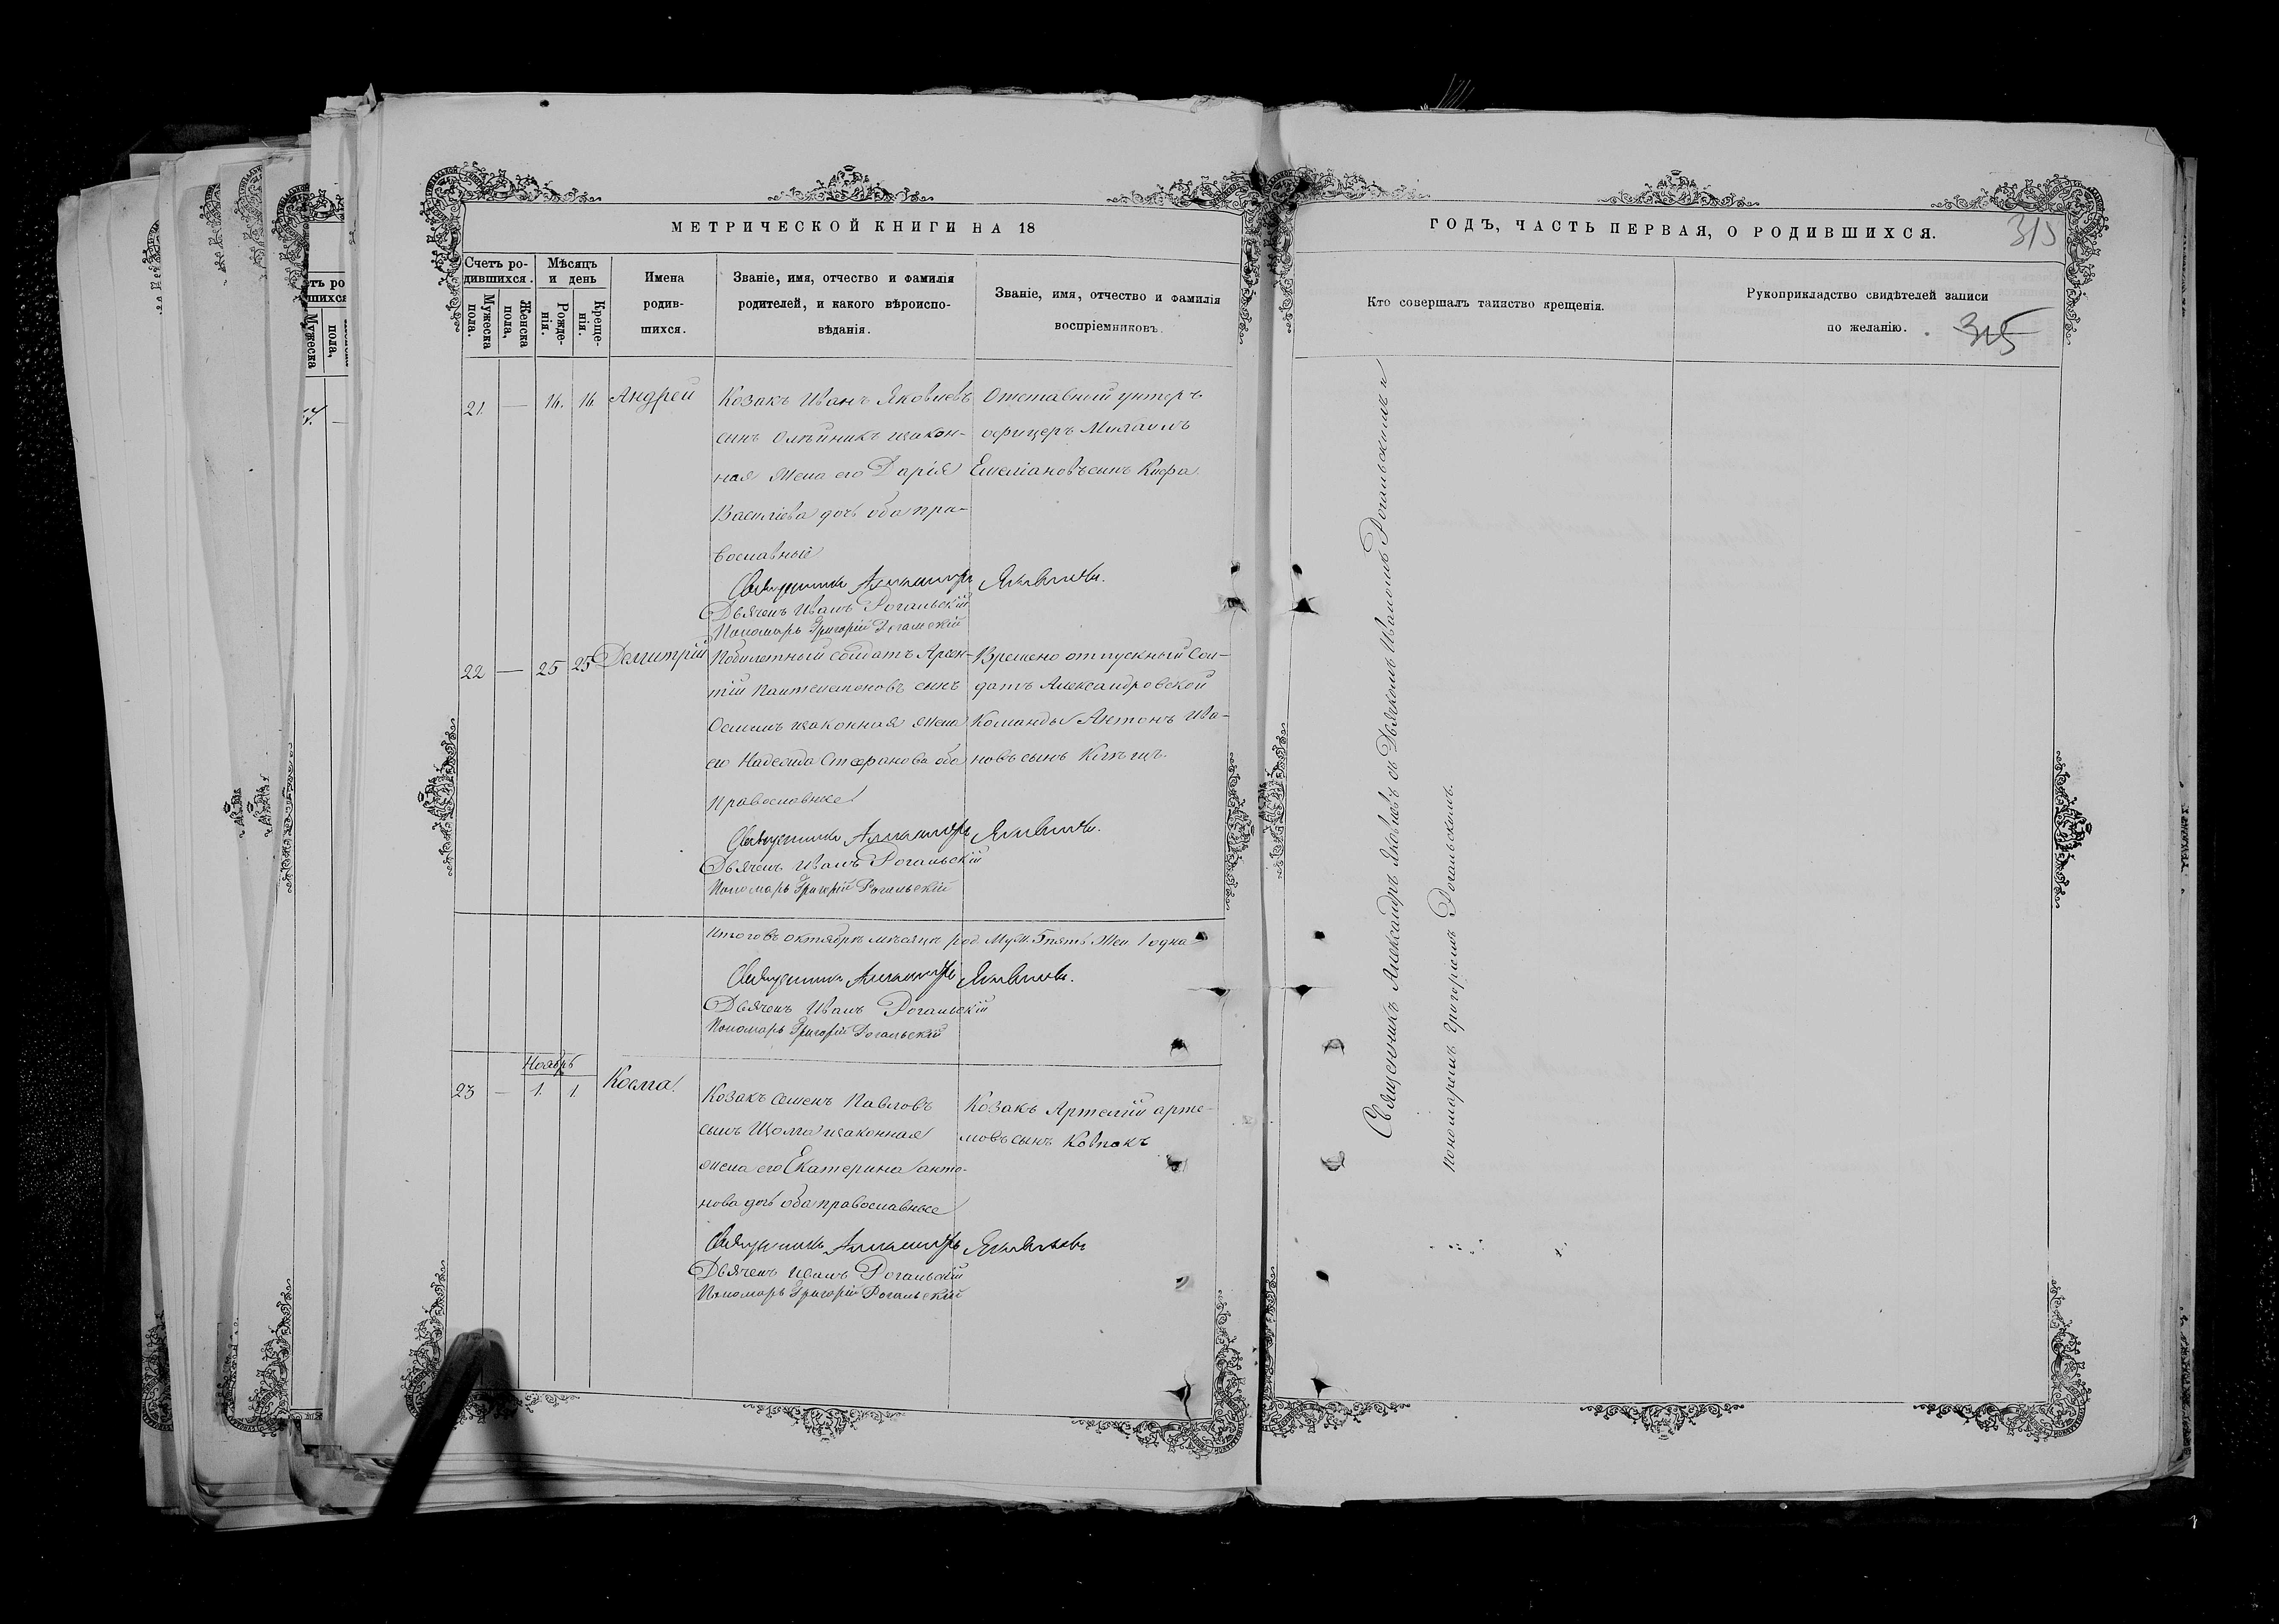 МЕТРИЧЕСКОЙ КНИГИ НА 18
Счетъ ро-
дившихся.
Мужеска
пола.
Женска
пола.
Мѣсяцъ
и день
Рожде-
нія.
Креще-
нія.
Имена
родив-
шихся.
Званіе, имя, отчество и фамилія
родителей, и какого вѣроиспо-
вѣданія.
Званіе, имя, отчество и фамилія
воспріемниковъ.
21. — 14. 14. Андрей
Козакъ Иванъ Яковлевъ
сынъ Олѣйникъ изакон-
ная жена его Дарія
Василіева дочь оба пра-
вославные
Отставный унтеръ
офицеръ Михаилъ
Емеліановъ сынъ Кифа
Священникъ Александръ Яковлевъ.
Дьяченъ Иванъ Рогальскій
Пономарь Григорій Рогальскій
22 — 25 25 Димитрій
Побилетный солдатъ Арсен-
тій Пантелеимоновъ сынъ
изаконная жена
его Надежда Стефанова оба
православные
Времено отпускный Сол-
датъ Александровской
Команды Антонъ Ива-
новъ сынъ
Священникъ Александръ Яковлевъ.
Дьяченъ Иванъ Рогальскій
Пономарь Григорій Рогальскій
Итого въ октябрѣ мѣсяцѣ род. Муж. 5 пять Жен. 1 одна
Священникъ Александръ Яковлевъ.
Дьяченъ Иванъ Рогальскій
Пономарь Григорій Рогальскій
Ноябрь
23 — 1. 1. Косма.
Козакъ Семенъ Павловъ
сынъ изаконная
жена его Екатерина анто-
нова дочь оба православные
Козакъ Артемій арте-
мовъ сынъ Ковпакъ
Священникъ Александръ Яковлевъ
Дьяченъ Иванъ Рогальскій
Пономарь Григорій Рогальскій
ГОДЪ, ЧАСТЬ ПЕРВАЯ, О РОДИВШИХСЯ.
315
Кто совершалъ таинство крещенія.
Рукоприкладство свидѣтелей записи
по желанію.
315
Священникъ Александръ Яковлевъ съ Дьякомъ Иваномъ Рогальскимъ и
пономаремъ Григоріемъ Рогальскимъ.